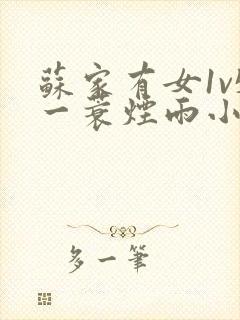 蘇家有女1v
一蓑煙雨小
多一筆